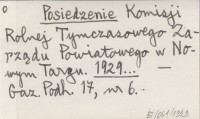 o
Posiedzenie Komisji
Rolnej Tymczasowego Za-
rządu Powiatowego w No-
wym Targu. 1929... —
Gaz. Podh. 17, nr 6.-